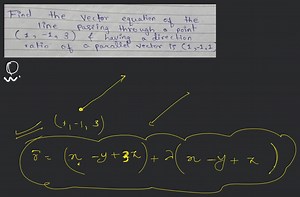 Find the vector equation of the
line passing through a point
(1, -1, 3) & having a direction
ratio of a parallel vector is (1,-1,1
Q.
(1, -1, 3)
r̄ = (x - y + 3z) + λ(x - y + z)